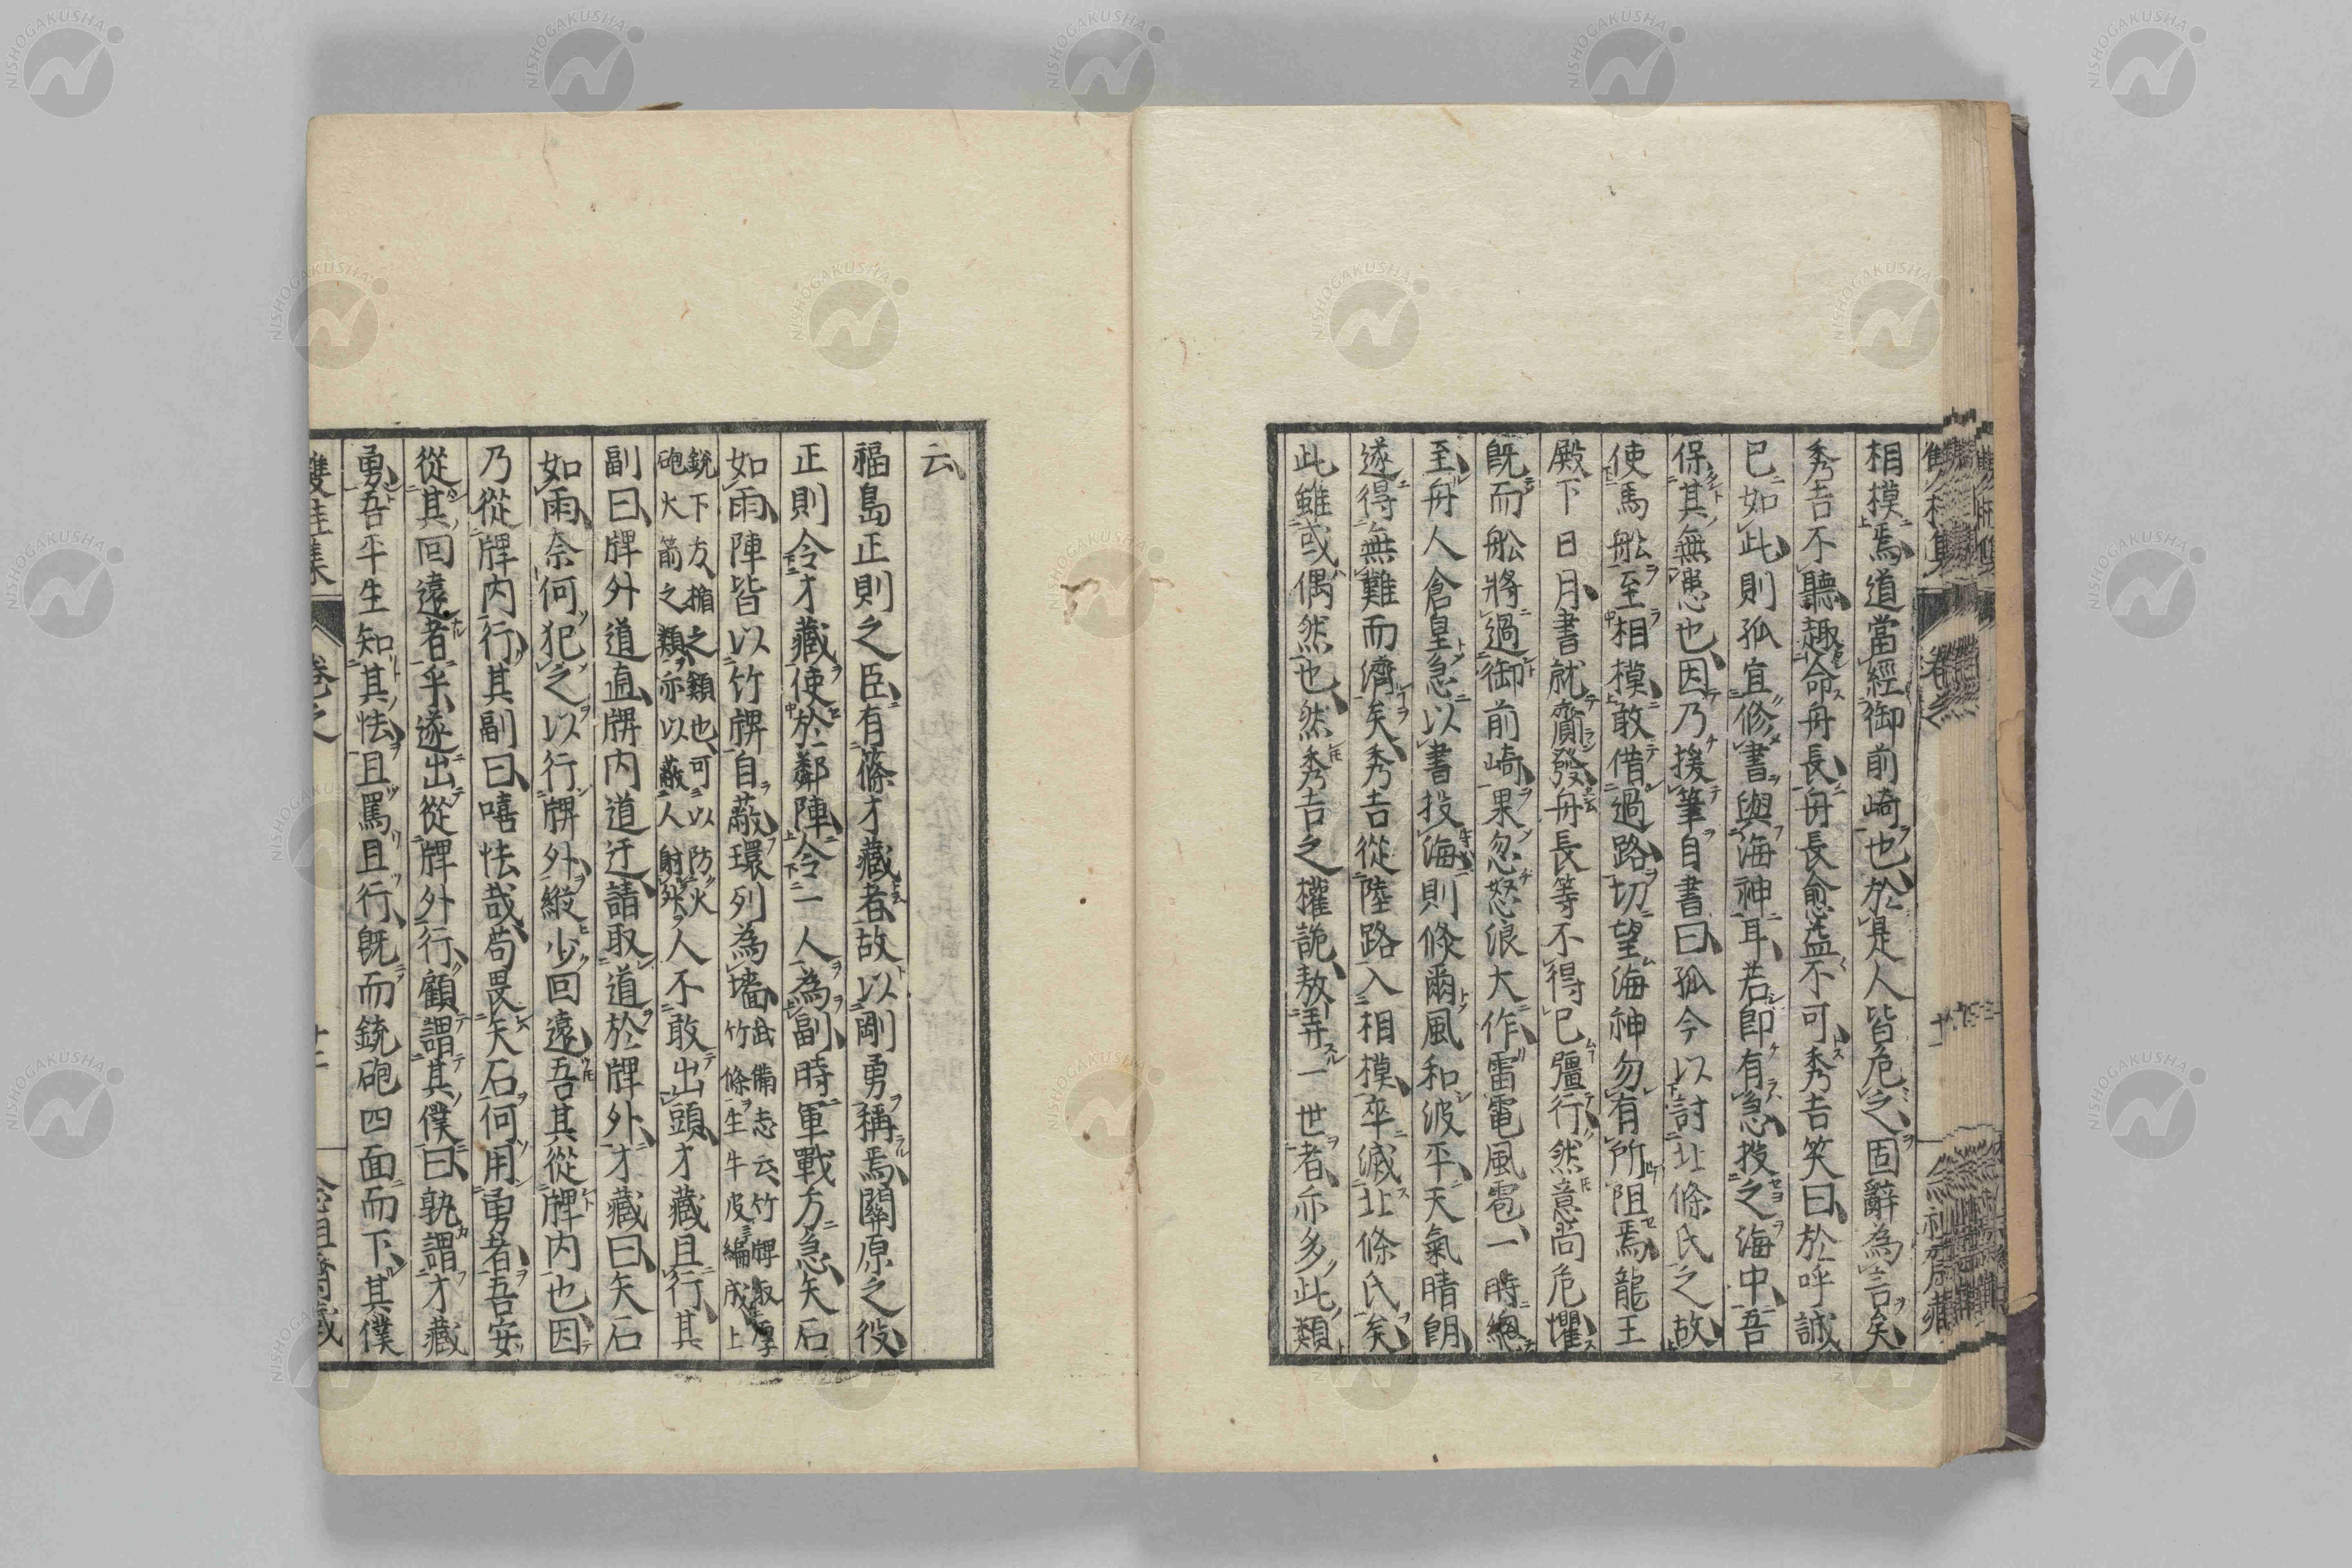 相模焉道當經御前崎也於是人皆危之固辭為言矣
秀吉不聽趣命舟長舟長愈益不可秀吉笑曰於呼誠
已如此則孤宜修書與海神耳若即有急投之海中吾
保其無恙也因乃援筆自書曰孤今以討北條氏之故
使馬船至相模敢借過路切望海神勿有所阻焉龍王
殿下日月書就齎發舟長等不得已彊行然意尚危懼
既而船將過御前崎果忽怒浪大作雷電風雹一時
至舟人倉皇急以書投海則倐爾風和波平天氣晴朗
遂得無難而濟矣秀吉從陸路入相模卒滅北條氏矣
此雖或偶然也然秀吉之權詭敖弄一世者亦多此類
云
福島正則之臣有篠才藏者故以剛勇稱焉關原之役
正則令才藏使於鄰陣令一人為副時軍戰方急矢石
如雨陣皆以竹牌自蔽環列為墻武備志云竹牌取厚
竹條生牛皮編成上
銃下方楯之類也可以防火
砲火箭之類亦以蔽人射外人不敢出頭才藏且行其
副曰牌外道直牌内道迂請取道於牌外才藏曰矢石
如雨奈何犯之以行牌外縱少回遠吾其從牌内也因
乃從牌内行其副曰嘻怯哉苟畏矢石何用勇者吾安
從其回遠者乎遂出從牌外行顧謂其僕曰孰謂才藏
勇吾平生知其怯且罵且行既而銃砲四面而下其僕
雙桂集
卷之
十二
NISHOGAKUSHA